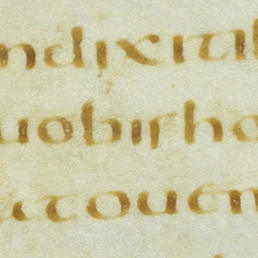 ndixitil
uobisho
atouem